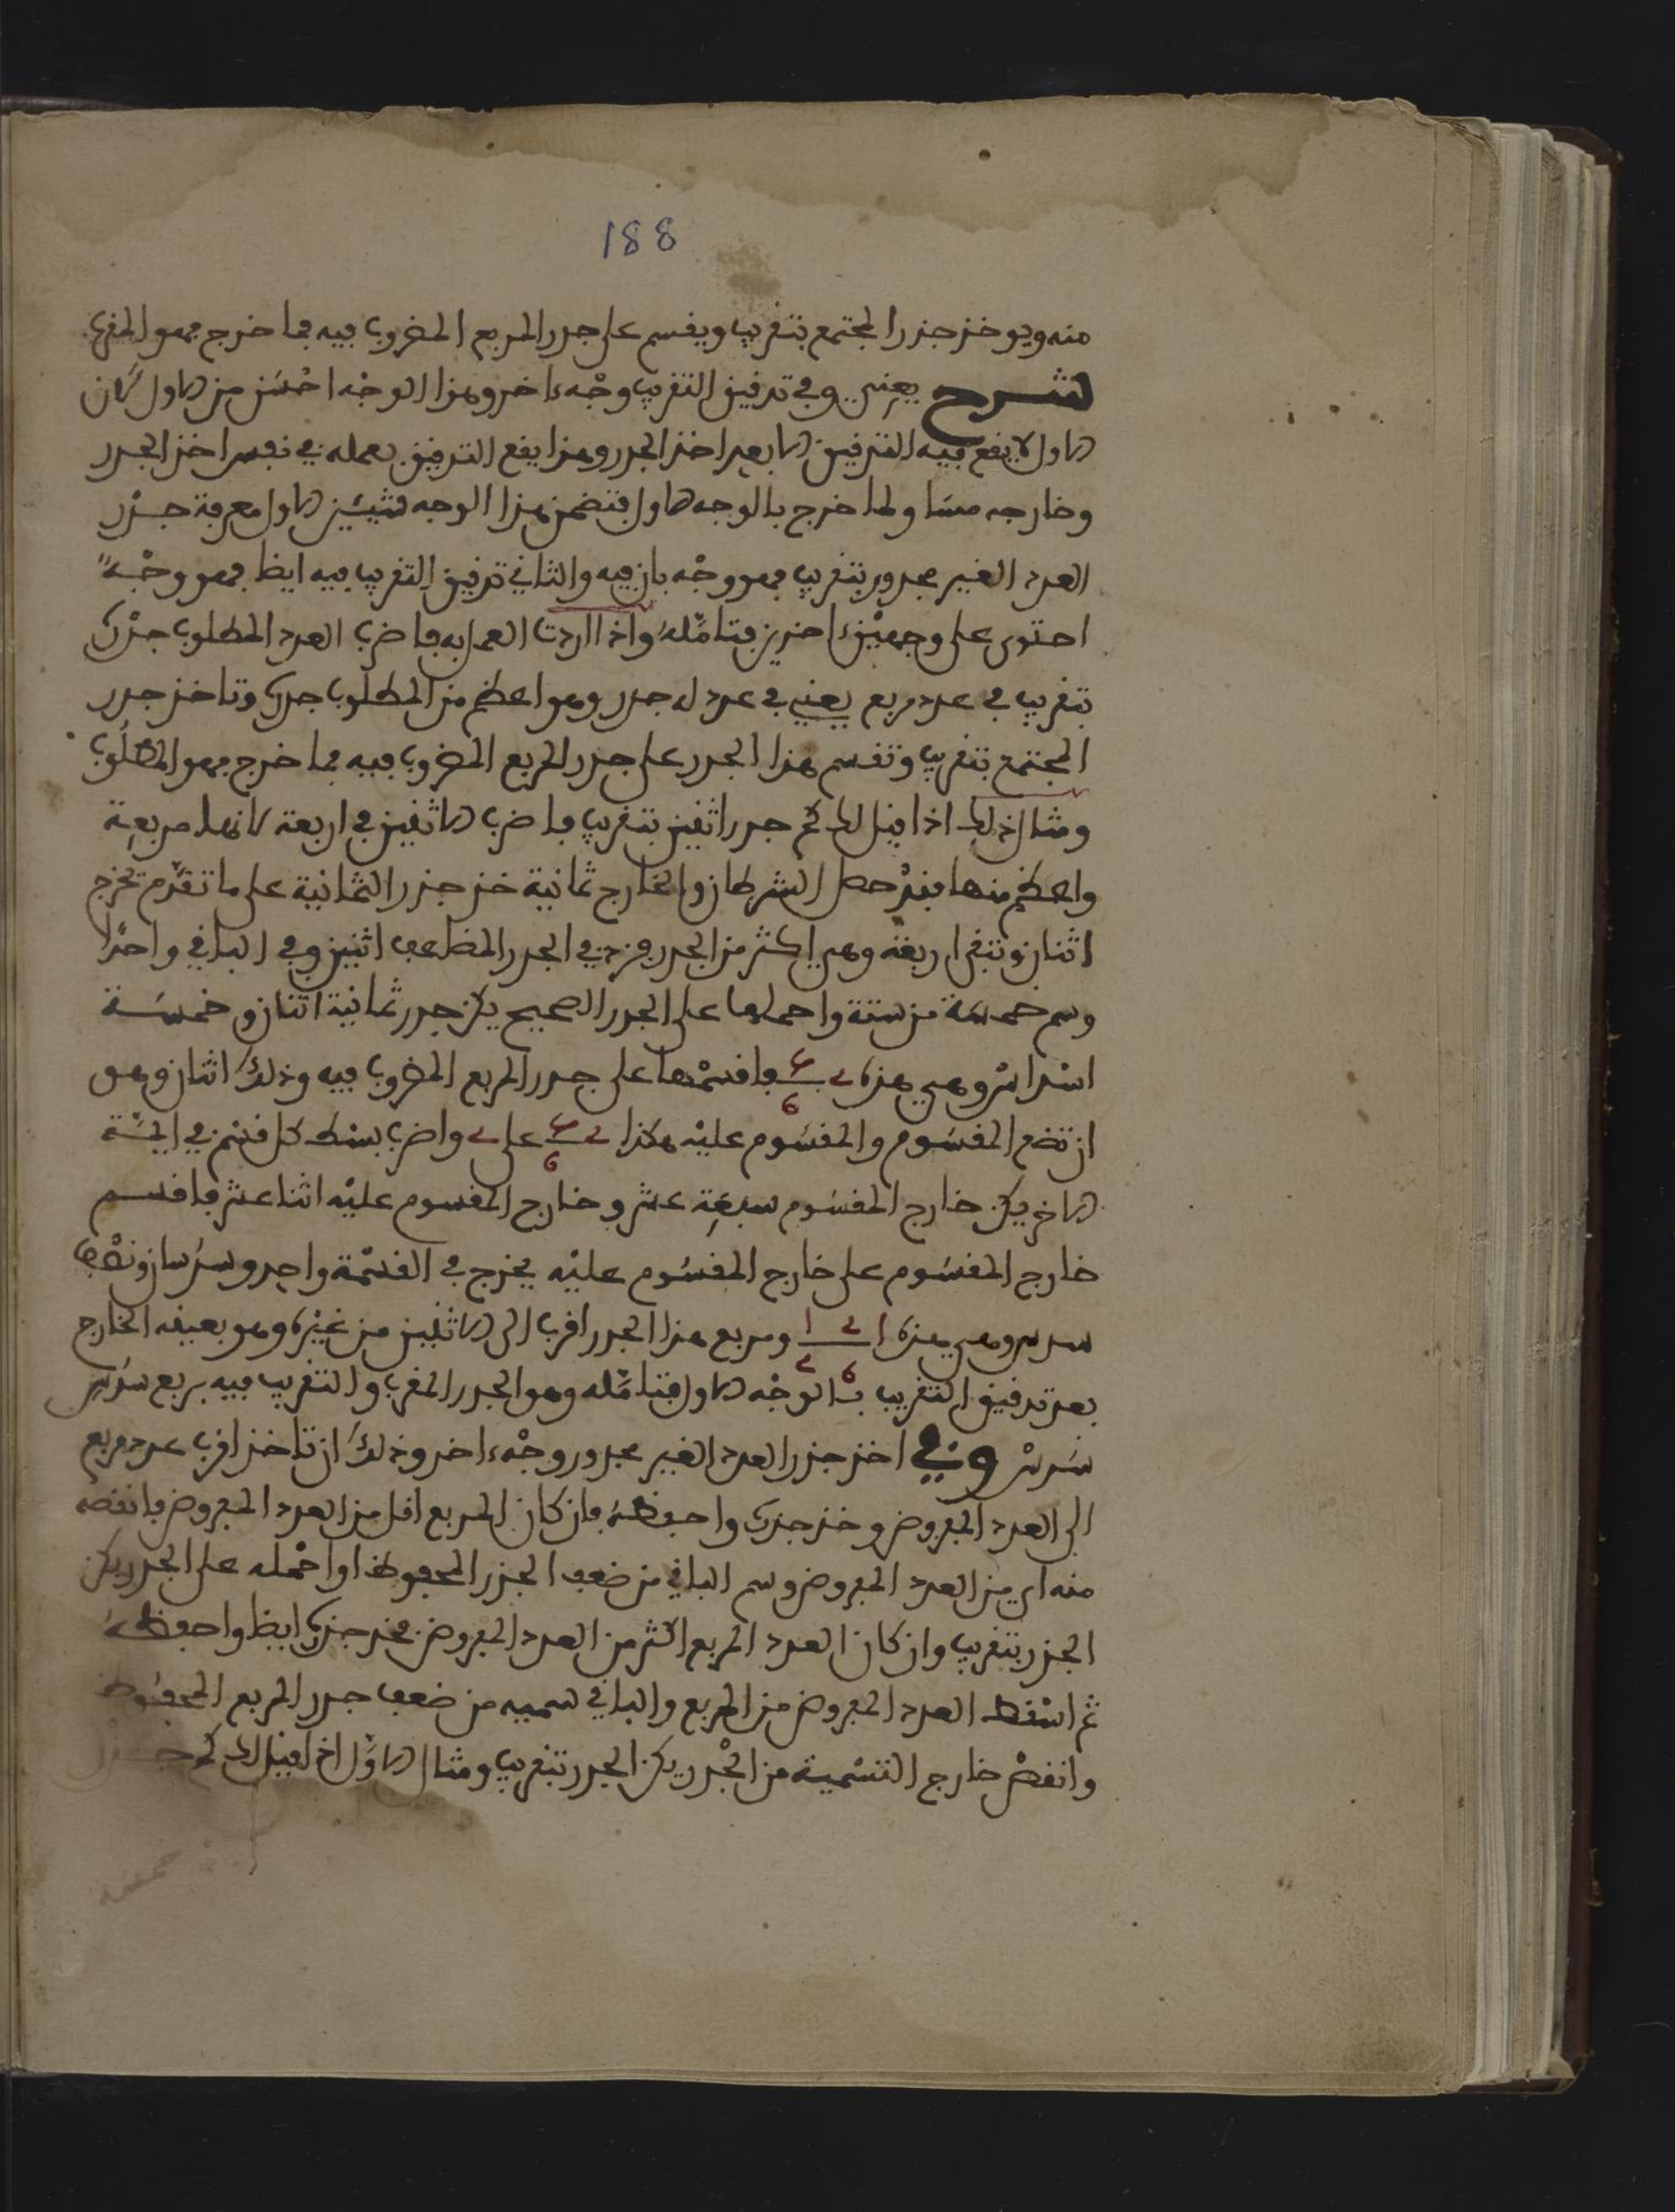 188
منه ويوخذ جذر المجتمع بتقريب ويقسم على جدر المربع المضروب فيه فما خرج فهو المقرب
شرح يعني وفي تدقيق التقريب وجْه ءاخر وهذا الوجْه احْسَن من الاول لان
الاول لا يقع فيه التدقيق الا بعد اخذ الجدر وهذا يقع التدقيق بعمله في نفس اخذ الجدر
وخارجه مسَاو لما خرج بالوجه الاول فتضمن هذا الوجه شيئيْن الاول معرفة جذر
العدد الغير مجدور بتقريب فهو وجْه بان فيه والثاني تدقيق التقريب فيه ايظا فهو وجْه
احتوى على وجهيْن ءاخرين فتامّلهُ واذا اردت العمل به فاضرب العدد المطلوب جذرُه
بتقريب في عدد مربع يعني في عدد له جدر وهو اعظم من المطلوب جدره وتاخذ جدر
المجتمع بتقريب وتقسم هذا الجدر على جدر المربع المضروب فيه فما خرج فهو المطلُوب
ومثال ذلك اذا قيل لك كم جدر اثنين بتقريب فاضرب الاثنين في اربعة لانها مربعة
واعظم منها فقدْ حصل الشرطان والخارج ثمانية خذ جذر الثمانية على ما تقدّم تخرج
اثنان وتبقى اربعة وهي اكثر من الجدر فزد في الجدر المظاعف اثنين وفي الباقي واحدًا
وسم خمسَة من ستة واحملها على الجدر الصحيح يكن جدر ثمانية اثنان وخمسَة
اسْداسْ وهي هذه 2 5/6 فاقسمْها على جدر المربع المضروب فيه وذلكَ اثنان وهو
ان تضع المقسُوم والمقسُوم عليْه هكذا 2 5/6 على 2 واضرب بسْط كل قسْم في ايمّة
الاخر يكن خارج المقسُوم سبعَة عشر وخارج المقسوم عليْه اثنا عشر فاقسم
خارج المقسُوم على خارج المقسُوم عليْه يخرج في القسْمة واحد وسدُسان ونصْف
سدس وهي هذه 1 2 1 / 6 2 ومربع هذا الجدر اقرب الى الاثنين من غيْره وهو بعينه الخارج
بعد تدقيق التقريب بالوجْه الاول فتامّله وهو الجدر المقرب والتقريب فيه بربع سدُس
سَدسْ وفي اخذ جذر العدد الغير مجدور وجْه ءاخر وذلكَ ان تاخذ اقرب عدد مربع
الى العدد المفروض وخذ جذره واحفظهُ فان كان المربع اقل من العدد المفروض فانقصه
منه اي من العدد المفروض وسم الباقي من ضعف الجذر المحفوظ او احْمله على الجدر يكن
الجذر بتقريب وان كان العدد المربع اكثر من العدد المفروض فخد جذره ايظا واحفظهُ
ثم اسْقط العدد المفروض من المربع والباقي سميه من ضعف جدر المربع المحفُوظ
وانقصْ خارج التسْمية من الجْدر يكن الجدر بتقريب ومثال الاوَّل اذا قيل لك كم جذر
خمسة